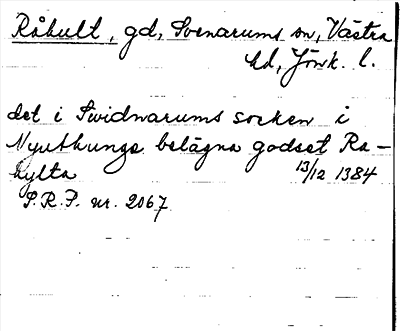 Råhult, gd, Svenarums sn, Västra
hd, Jönk. l.
det i Swidnarums socken i
Nyuthungs belägna godset Ra-
hylta 13/12 1384
S.R.P. nr. 2067